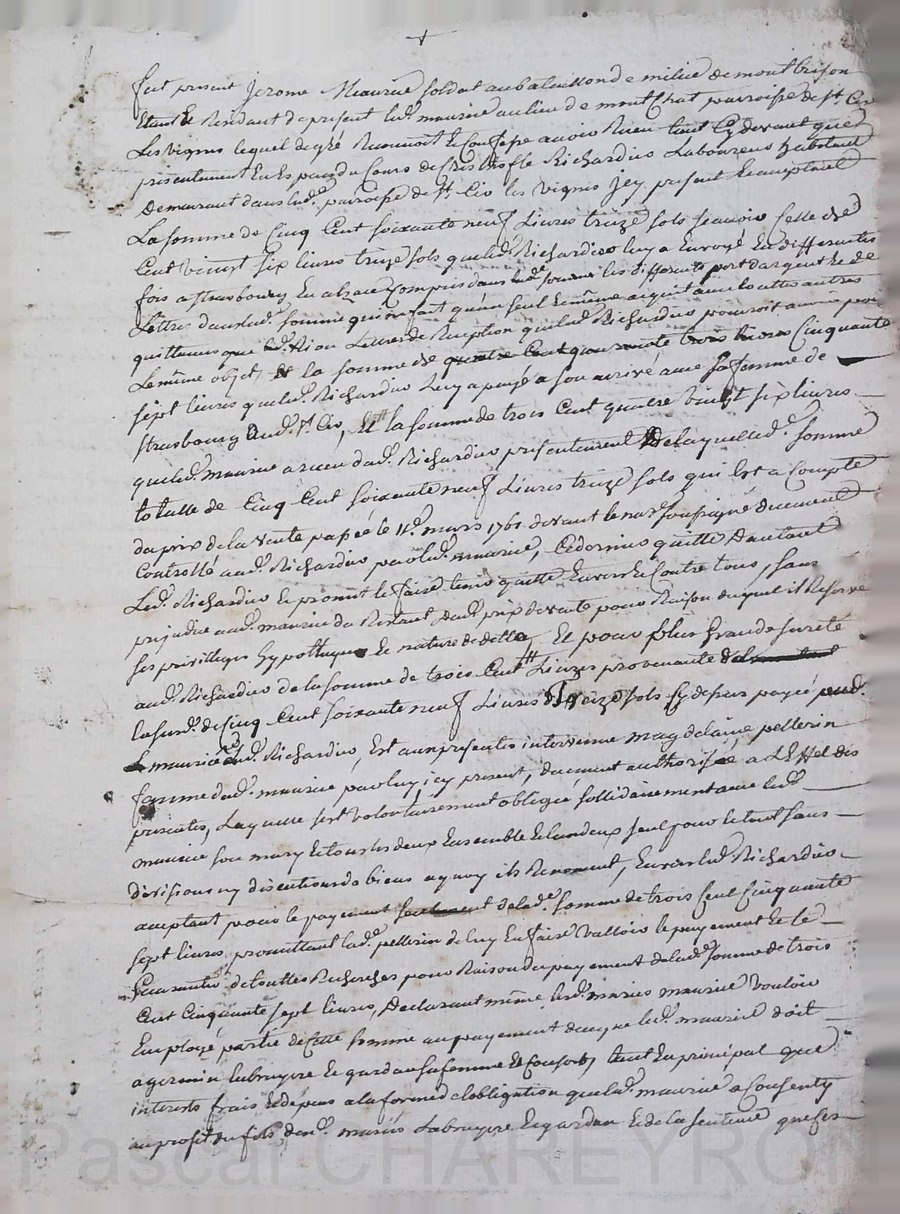 +
fut present Jerome Maurice soldat au bataillond e milice de mont brison
Etant Et Residant de present lud. maurice au lieu de mont Chat parroisse de St. Cir
Les vignes lequel de gré Reconnoit Et Confesse avoir Receu tant Cy devant que
presentement En Espece du Cours de Cristofle Richardier Laboureur habitant
Demeurant dans lad. parroisse de St. Cir les vignes Jcy present Et acceptant
La somme de Cinq Cent soixante neuf Livres treize sols scavoir Celle de
Cent vingt six livres treize sols que led. Richardier luy a Envoyé En differentes
fois a strasbourg En alzace Compris dans lad. somme les differents port d'argent Et de
Lettres dans lad. somme qui ne font qu'un seul Et même acquit avec toutes autres
quittances que Lettres de Reception que led. Richardier pourroit avoir pour
Le même objet, Et la somme de quatre Cent quarante trois Cinquante
sept livres que led. Richardier luy a payé a son arrivé avec sa femme de
strasbourg aud. St. Cir, Et la somme de trois Cent quatre vingt six livres
que led. maurice a receu dud. Richardier presentement De laquelle d. somme
totalle de Cinq Cent soixante neuf Livres treize sols qui Est a Compte
du prix de la vente passée le 11e. mars 1760 devant le no.re soussigné duement
Controllé aud. Richardier par led. maurice, Ce dernier quitte D'autant
Led. Richardier Et promet le faire tenir quitte Envers Et Contre tous, sans
prejudice aud. maurice du Restant dud. prix de vente pour Raison duquel il Reserve
ses privilleges hypotheque Et nature de dette, Et pour plus grande sureté
aud. Richardier de la somme de trois Cent Livres provenante
la surd. de Cinq Cent soixante neuf Livres Treize sols Cy dessus payée
maurice Led. Richardier, Est aux presentes intervenue magdelaine pellerin
femme dud. maurice par luy jcy present, duement authorisée a L'Effet des
presentes, Laquelle s'est volontairement obligée sollidairement avec led.
maurice son mary Et tous les deux Ensemble Et l'un d'eux seul pour le tout sans
division ny discution de biens a quoy ils Renoncent, Envers led. Richardier
acceptant pour le payement seulement de lad. somme de trois Cent Cinquante
sept livres, promettant lad. pellerin de luy En faire Valloir le payement Et le
Guarantir de touttes Recherches pour Raison du payement de lad. somme de trois
Cent Cinquante sept livres, Declarant même lesd. mariés maurice Vouloir
Employé partie de Cette somme au payement de ce que led. maurice doit
a germin labruyere Et gardan sa femme Et Consorts tant En principal que
interests frais Et depens a la forme de l'obligation que led. maurice a Consenty
au profit du fils desd. mariés Labruyere Et gardan Et de la sentence
Pascal CHAREYRON